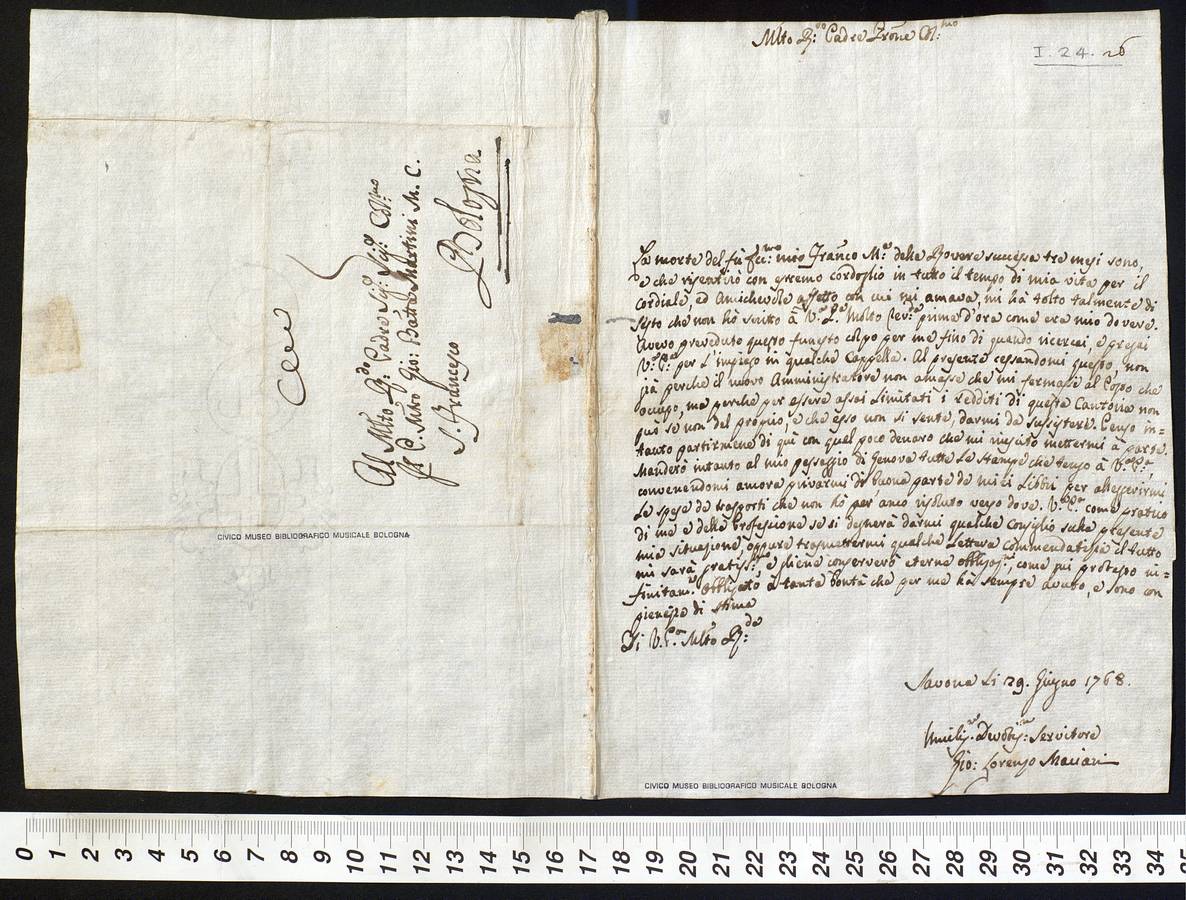 Al Mlto R:do Padre Sig: Sig:e Col:mo
Il P. Mro Gio: Batta Martini M. C.
S. Francesco
Bologna
CIVICO MUSEO BIBLIOGRAFICO MUSICALE BOLOGNA
Mlto R:do Padre Prone Col:mo
I. 24. 26
La morte del fù mio Franco M.a della Rovere successa tre mesi sono,
e che risentirò con estremo cordoglio in tutto il tempo di mia vita per il
cordiale, ed amichevole affetto con cui mi amava, mi hà tolto talmente di
sesto che non hò scritto à V.a P.a Molto Rev:da prima d'ora come era mio dovere.
Avevo preveduto questo funesto colpo per me fino di quando ricercai, e pregai
V.a P.a per l'impiego in qualche Cappella. Al presente cessandomi questo, non
già perche il nuovo Amministratore non amasse che mi fermassi al Posto che
occupo, ma perche per essere assai limitati i redditi di questa Cantoria non
può se non del proprio, e che esso non si sente, darmi da sussistere. Penso in=
tanto partirmene di quì con quel poco denaro che mi riescito mettermi à parte.
Manderò intanto al mio passaggio di Genova tutte le stampe che tengo à V.a P.a,
convenendomi ancora privarmi di buona parte de miei Libri per alleggerirmi
le spese de trasporti che non hò per anco risoluto verso dove. V.a P.a come pratico
di me e della Professione se si degnerà darmi qualche Consiglio sulla presente
mia situazione, oppure trasmettermi qualche Lettera Commendatizia il tutto
mi sarà gratiss:mo, e gliene conserverò eterna obbligaz:e, come mi protesto in=
finitam:e obbligato a tanta bontà che per me hà sempre avuto, e sono con
pienezza di stima
Di V.P.a Mlto R:da
Savona li 29. Giugno 1768.
Umilis:mo Devotis:mo Servitore
Gio: Lorenzo Mariani
CIVICO MUSEO BIBLIOGRAFICO MUSICALE BOLOGNA
0 1 2 3 4 5 6 7 8 9 10 11 12 13 14 15 16 17 18 19 20 21 22 23 24 25 26 27 28 29 30 31 32 33 34 35